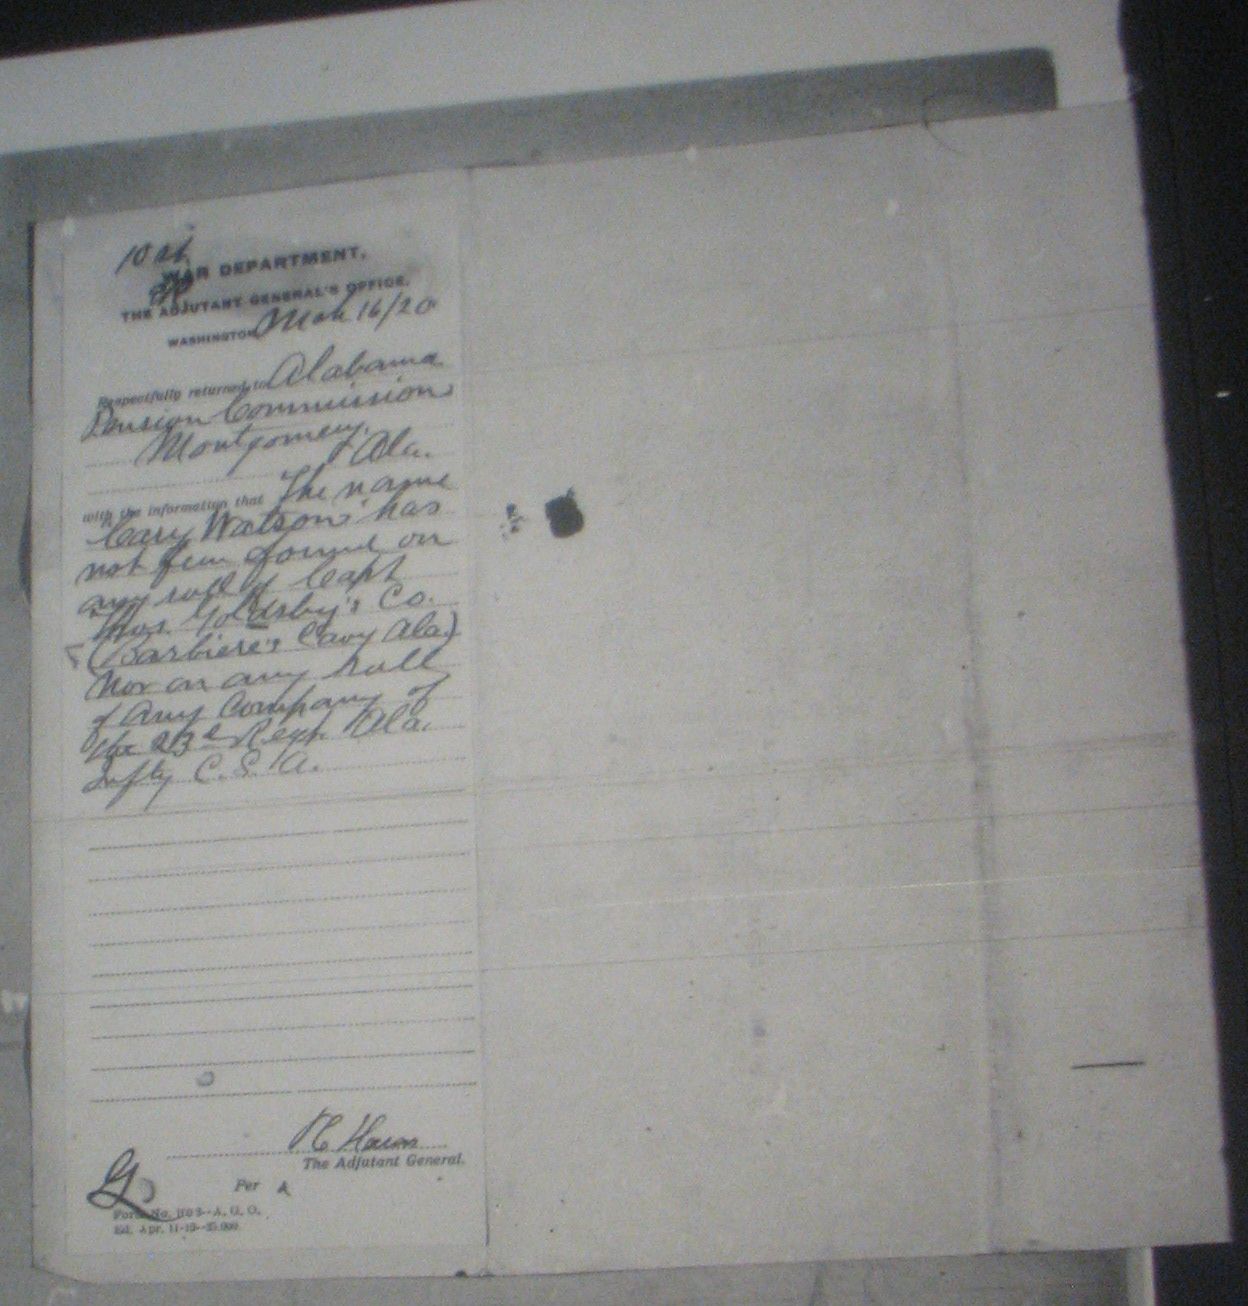 WAR DEPARTMENT,
THE ADJUTANT GENERAL'S OFFICE,
WASHINGTON, Mch 16/20
Respectfully returned to Alabama
Pension Commission
Montgomery,
Ala.
with the information that The name
Cary Watson has
not been found on
any roll of Capt
Thos. Goldsby's Co.
(Barbiere's Cavy Ala.)
nor on any roll
of any Company of
the 23d Regt. Ala.
Infty C.S.A.
The Adjutant General.
Per
Form No. A. G. O.
Ed. Apr. 11-19